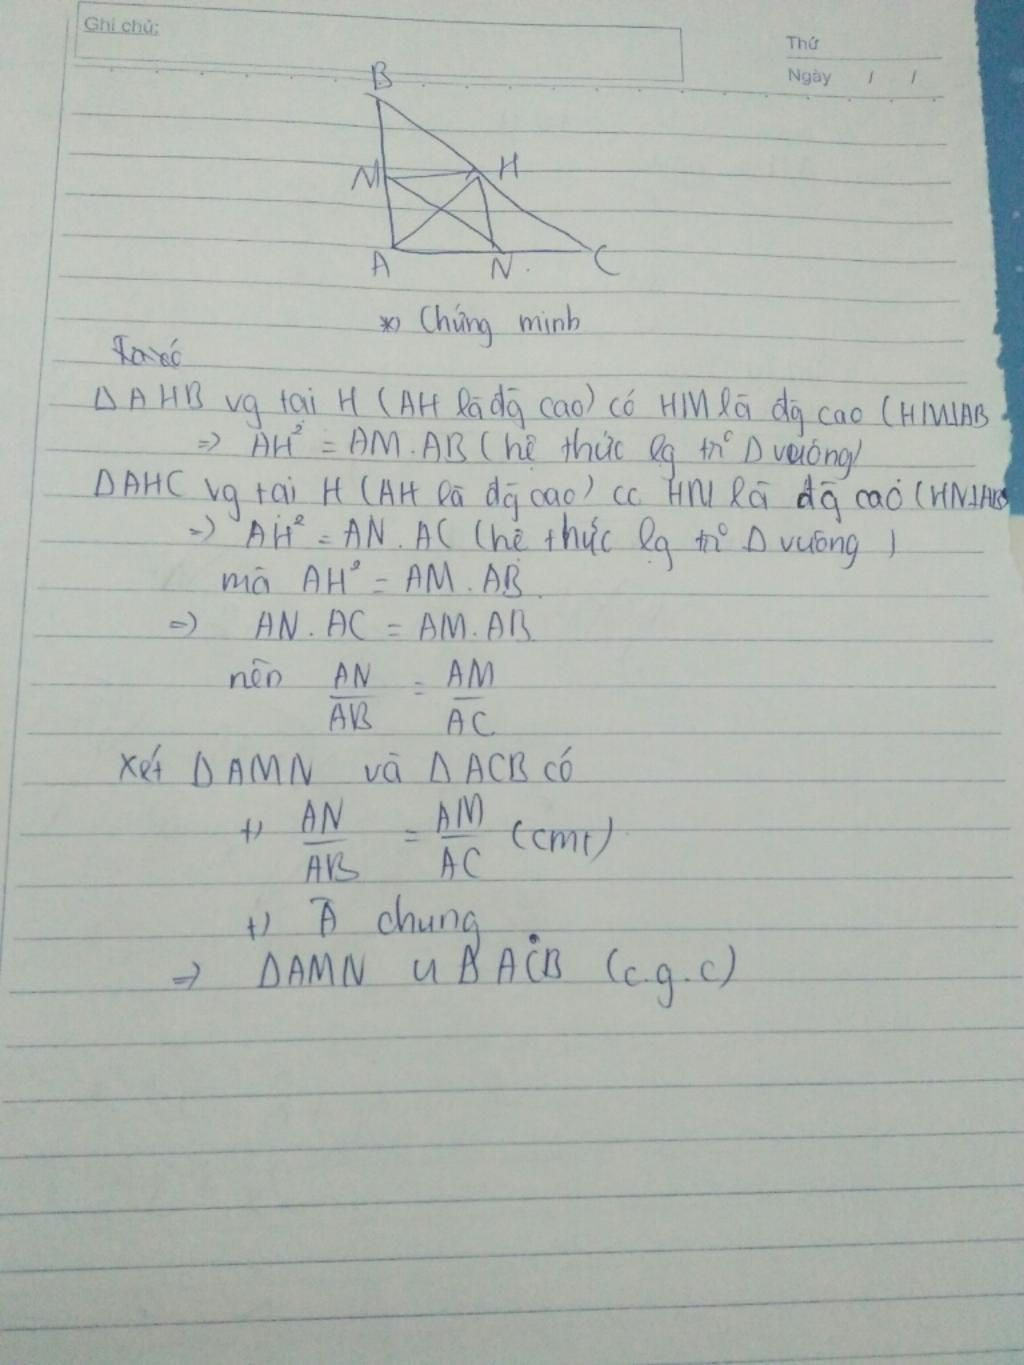 Ghi chú:
Thứ
Ngày / /
B
M
H
A
N
C
*) Chứng minh
Ta có
Δ AHB vg tại H (AH là đg cao) có HM là đg cao (HM⊥AB
=> AH² = AM.AB (hệ thức lg trº Δ vuông)
ΔAHC vg tại H (AH là đg cao) có HN là đg cao (HN⊥
=> AH² = AN.AC (hệ thức lg trº Δ vuông)
mà AH² = AM.AB
=> AN.AC = AM.AB
nên AN/AB = AM/AC
Xét ΔAMN và ΔACB có
+) AN/AB = AM/AC (cmt)
+) Â chung
=> ΔAMN ᔕ ΔACB (c.g.c)